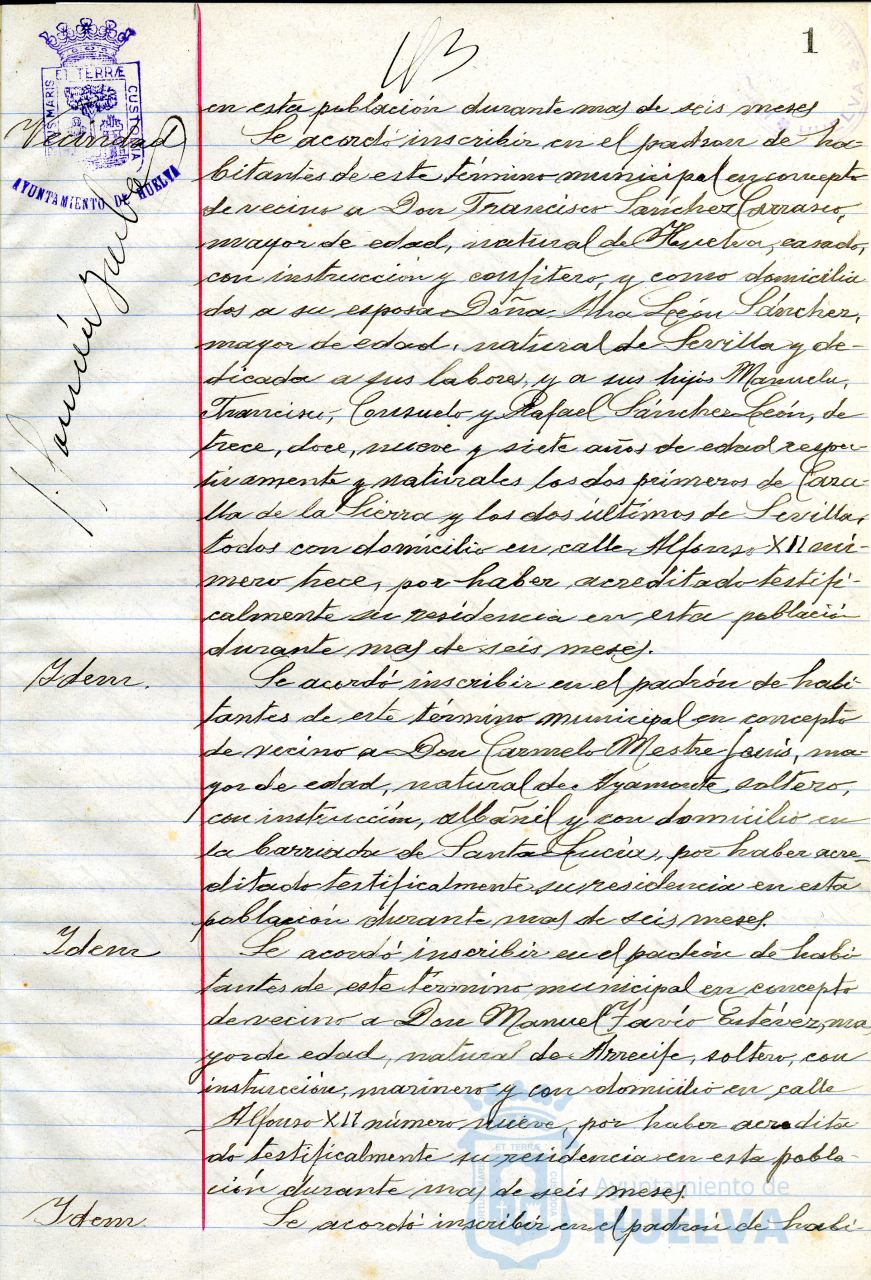 1
ET TERRÆ
CUSTODIA
AYUNTAMIENTO DE HUELVA
en esta población durante mas de seis meses
Vecindad
Se acordó inscribir en el padron de ha-
bitantes de este término municipal en concepto
de vecino a Don Francisco Sánchez Carrasco,
mayor de edad, natural de Huelva, casado,
con instrucción y confitero, y como domicilia
dos a su esposa Doña Ana León Sánchez,
mayor de edad, natural de Sevilla y de-
dicada a sus labores, y a sus hijos Manuela,
Francisco, Consuelo y Rafael Sánchez León, de
trece, doce, nueve y siete años de edad respec-
tivamente y naturales los dos primeros de Caza-
lla de la Sierra y los dos últimos de Sevilla,
todos con domicilio en calle Alfonso XII nú-
mero trece, por haber acreditado testifi-
calmente su residencia en esta población
durante mas de seis meses.
Idem.
Se acordó inscribir en el padrón de habi
tantes de este término municipal en concepto
de vecino a Don Carmelo Mestre, ma-
yor de edad, natural de Ayamonte, soltero,
con instrucción, albañil y con domicilio en
la barriada de Santa Lucía, por haber acre-
ditado testificalmente su residencia en esta
población durante mas de seis meses.
Idem
Se acordó inscribir en el padrón de habi
tantes de este término municipal en concepto
de vecino a Don Manuel Estévez, ma
yor de edad, natural de Arrecife, soltero, con
instrucción, marinero y con domicilio en calle
Alfonso XII número nueve, por haber acredita
do testificalmente su residencia en esta pobla-
ción durante mas de seis meses.
Idem.
Se acordó inscribir en el padrón de habi
Ayuntamiento de
HUELVA